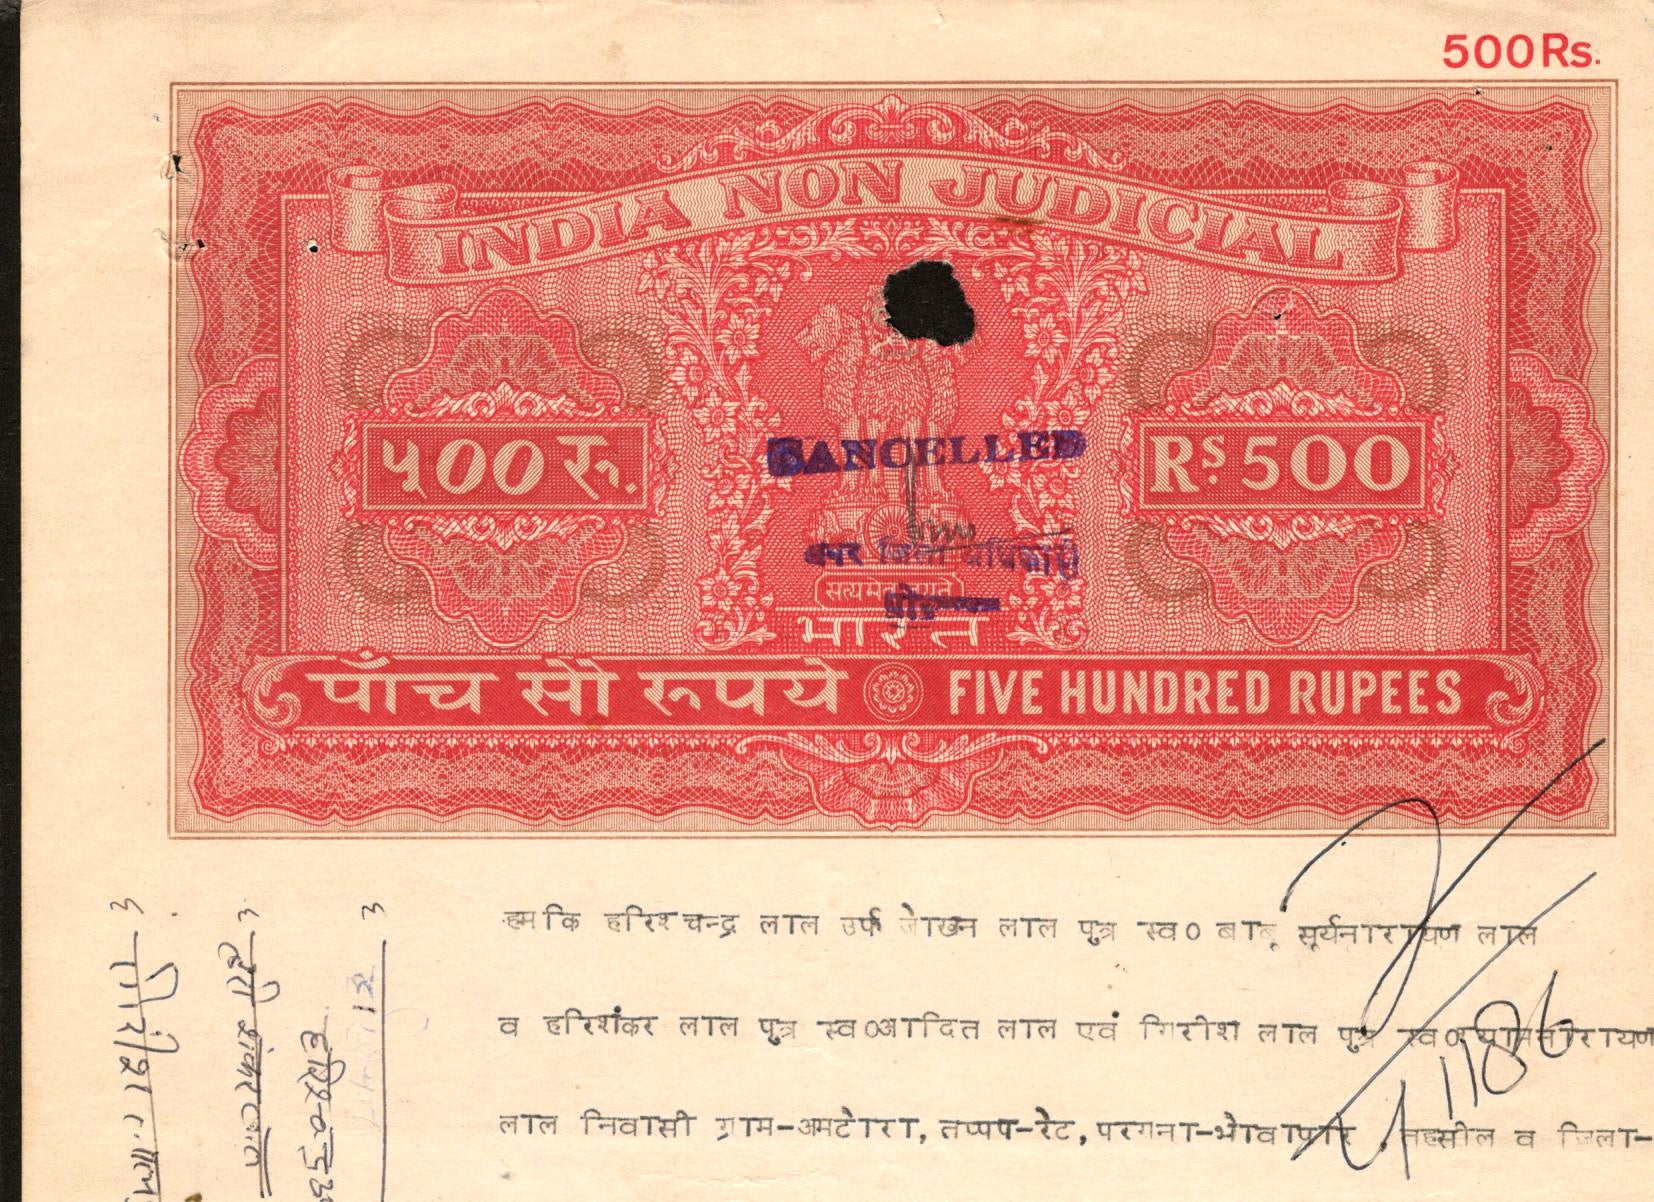 500Rs.
INDIA NON JUDICIAL
५00 रू.
RS. 500
CANCELLED
अपर जिला अधिकारी
सत्यमेव जयते
भारत
पाँच सौ रूपये FIVE HUNDRED RUPEES
हमकि हरिश्चन्द्र लाल उर्फ जोखन लाल पुत्र स्व0 बाबू सूर्यनारायण लाल
व हरिशंकर लाल पुत्र स्व0आदित लाल एवं गिरीश लाल पुत्र स्व0
लाल निवासी ग्राम-अमटौरा, तप्पा-रेट, परगना-भौवापार, तहसील व जिला-
हरी शंकर लाल